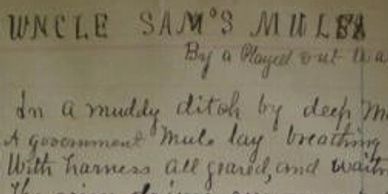 UNCLE SAM'S MULES
By a Played out
In a muddy ditch by deep
A government Mule lay breathing
With harness all geared, and